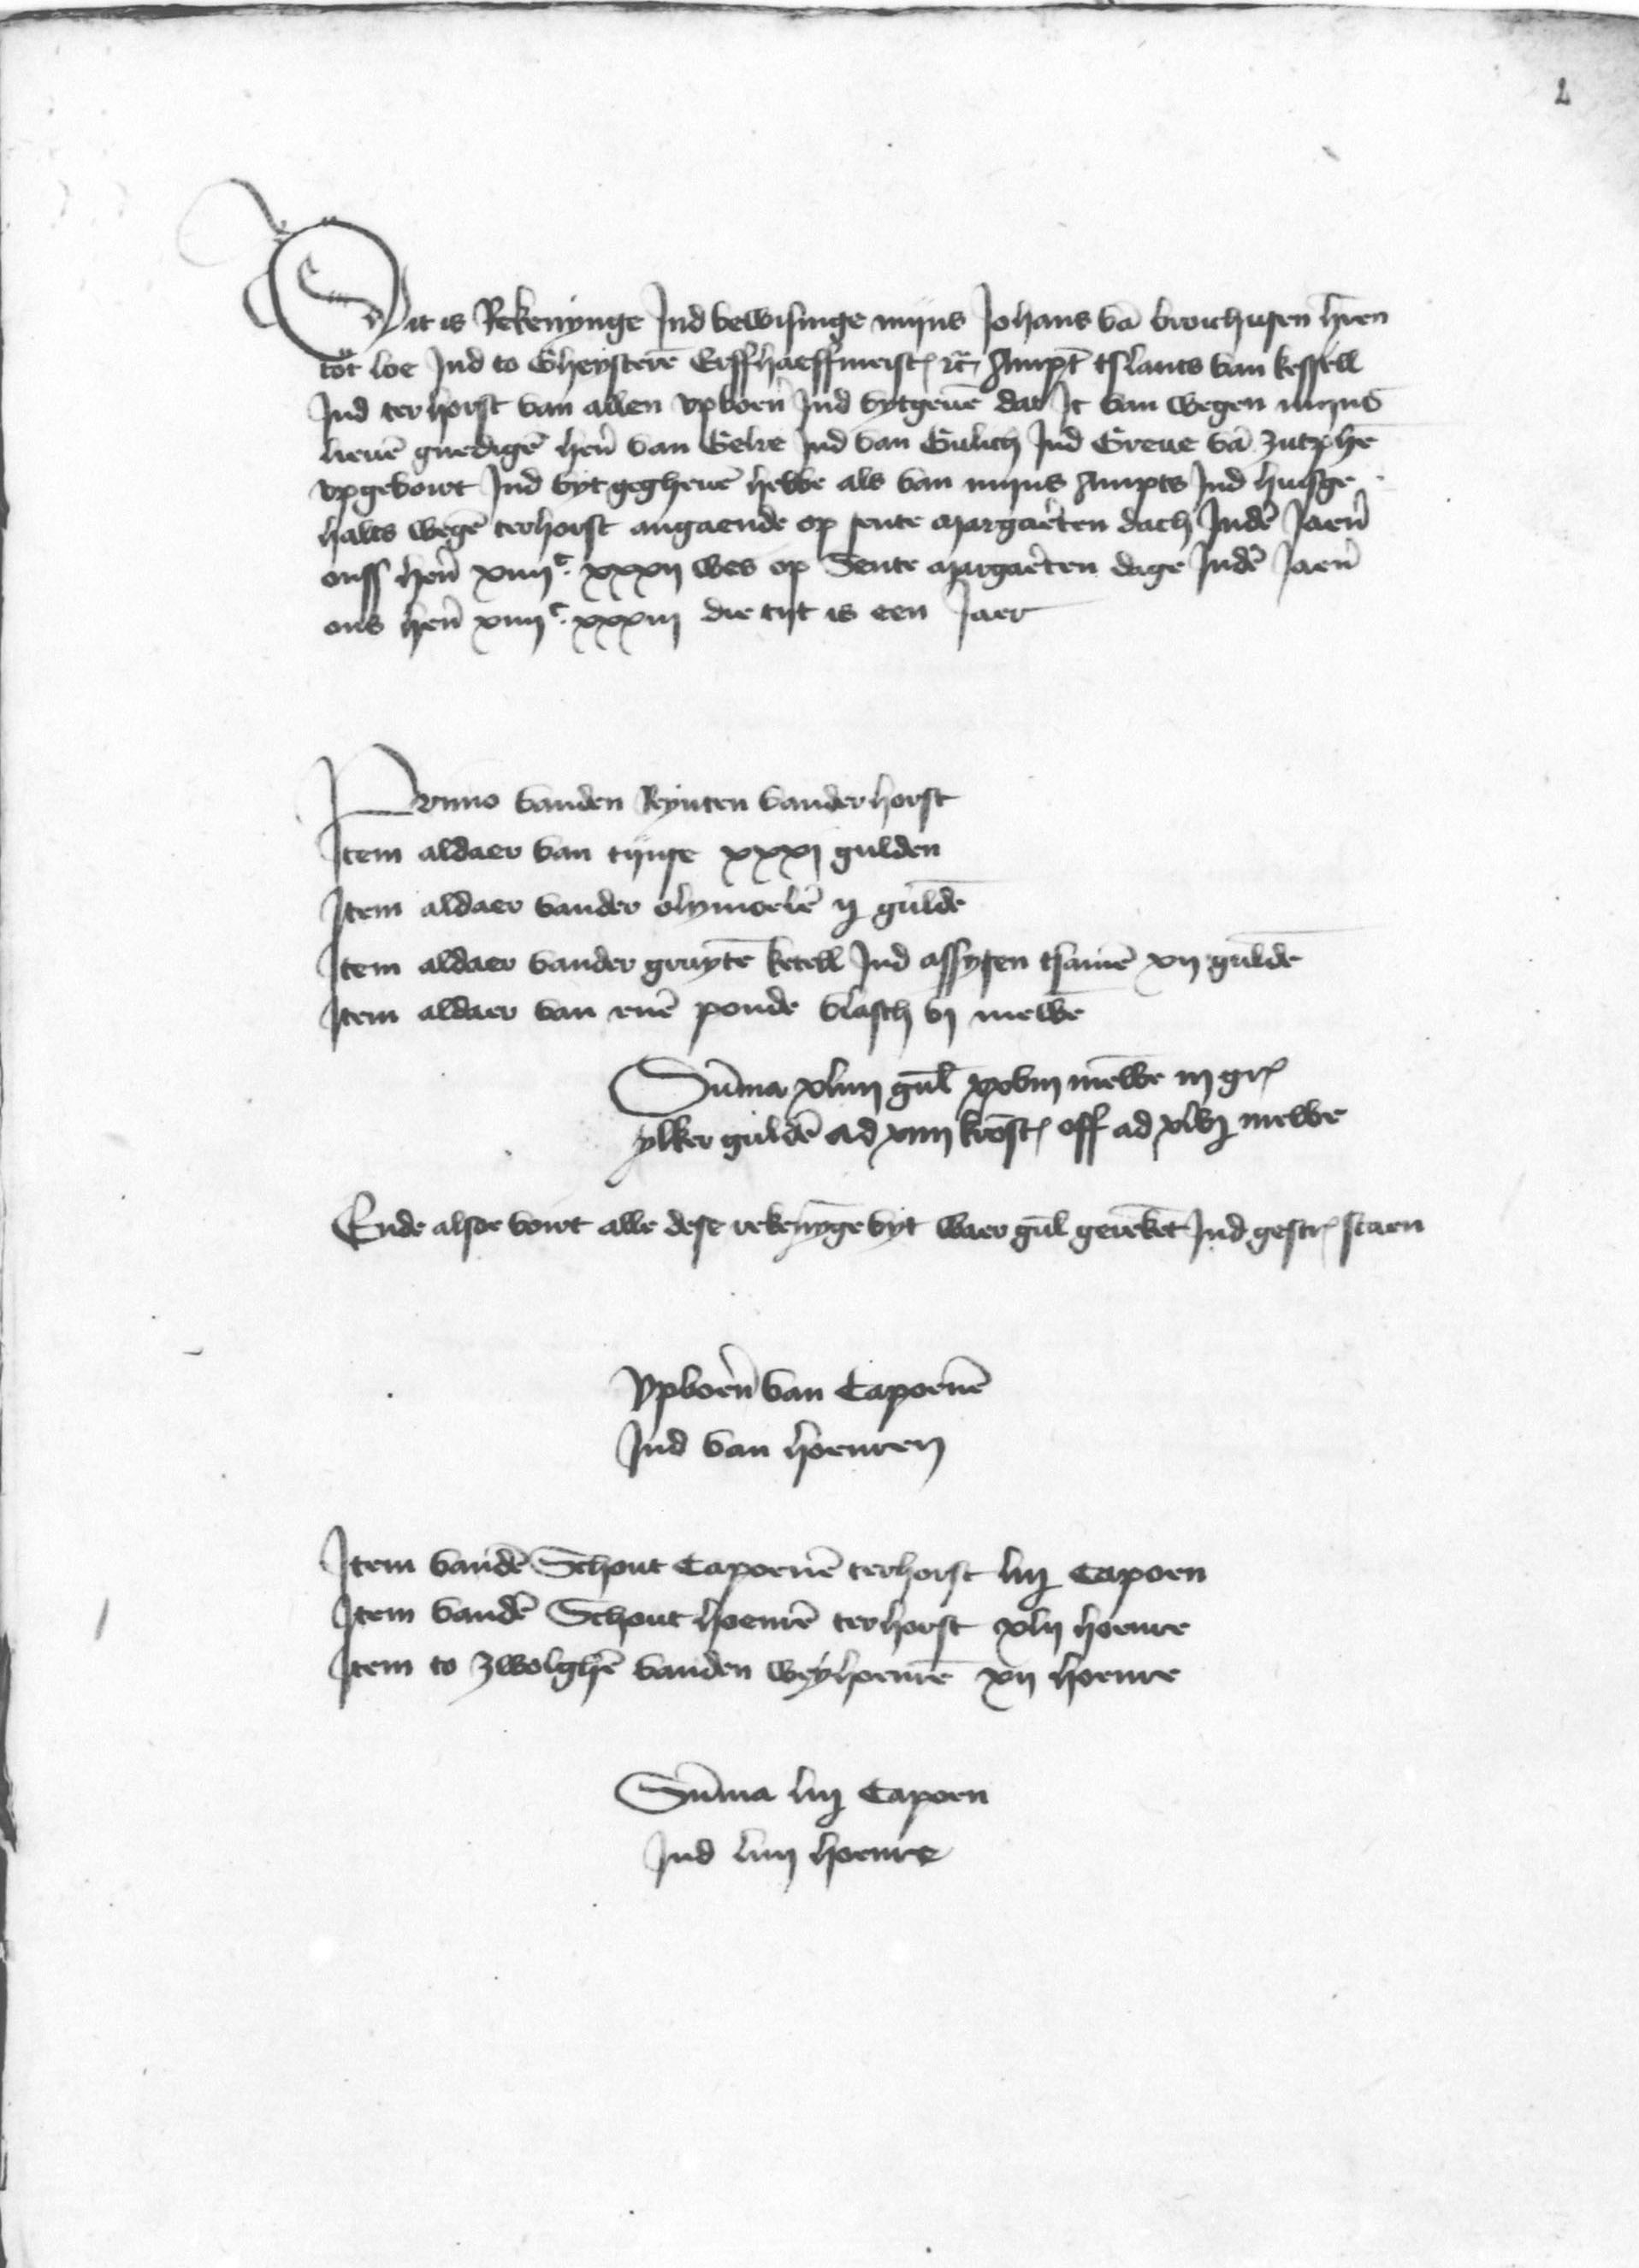 2
Dit is Rekenynge Jnd bewisinge mijns Johans vā broichusen hr̄en
tot loe Jnd to Gheysterē Erffhaeffmeist̄ ꝛc̄ Ampt̄ tslants van kessell
Jnd ter horst van allen vpboerñ Jnd vytgeuē dat Jc van wegen mijns
lieuē gnedigē hrñ van Gelre Jnd van Gulich Jnd Greue vā zutphē
vpgebort Jnd vytgegheuē hebbe als van mijns Ampts Jnd huesge
halts wegē terhorst angaende op sente margareten dach Jndē Jaerñ
onss herñ xiiiiᶜ. xxxij wes op Sente margareten dage Jndē Jaerñ
ons herñ xiiiiᶜ. xxxiij die tijt is een Jaer
Primo vanden Reynten vander horst
Jtem aldaer van tijnse xxxi gulden
Jtem aldaer vander olymoelē ij guldē
Jtem aldaer vander gruytē ketell Jnd assysen tsamē xij guldē
Jtem aldaer van enē ponde vlasch vj mewē
Sūma xliiij gul̄ xxviij mēwe iij gr̄
ylker guldē ad xiiij krōst̄ off ad xlvj mewe
Ende alsoe voirt alle dese rekenȳge vyt waer gul̄ gerēket Jnd gescr̄ staen
Vpboerñ van Capoenē
Jnd van hoenren
Jtem vandē Schout Capoenē terhorst liij Capoen
Jtem vandē Schout hoenrē terhorst xlij hoenre
Jtem to zwolghē vanden weyhoenrē xij hoenre
Sūma liij Capoen
Jnd liiij hoenre